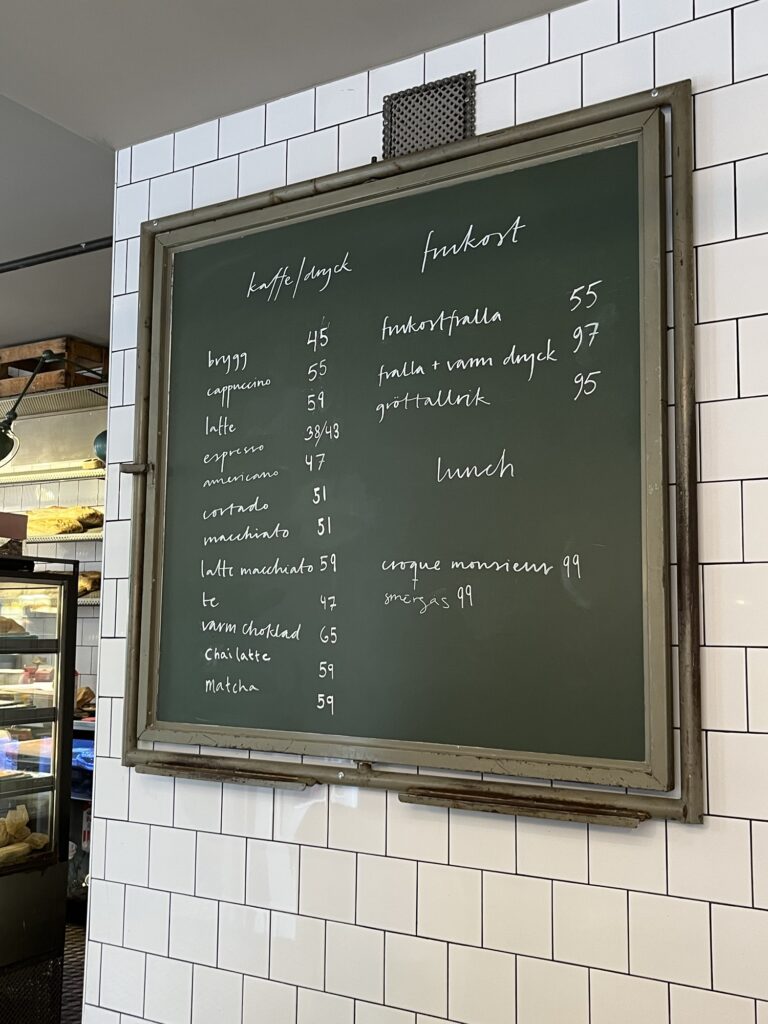 kaffe/dryck
brygg 45
cappuccino 55
latte 59
espresso 38/43
americano 47
cortado 51
macchiato 51
latte macchiato 59
te 47
varm choklad 65
Chailatte 59
Matcha 59
frukost
frukostfralla 55
fralla + varm dryck 97
gröttallrik 95
lunch
croque monsieur 99
smörgås 99